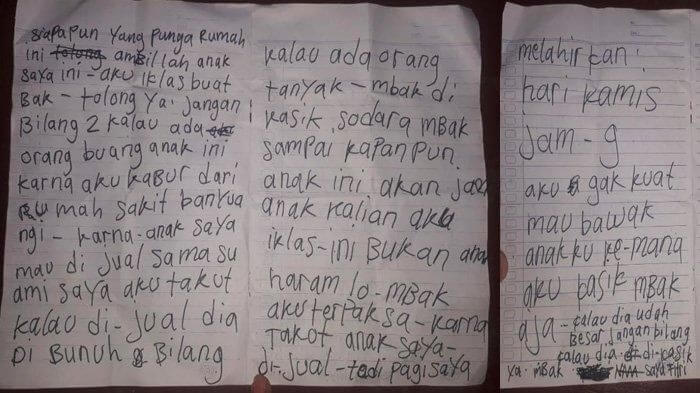 siapapun yang punga Rumah
ini tolong ambillah anak
saya ini - aku iklas buat
Bak - tolong ya. jangan
Bilang 2 kalau ada
orang buang anak ini
karna aku kabur dari
Rumah sakit banyua
ngi - karna-anak saya
mau di jual sama su
ami saya aku takut
kalau di-jual dia
Di Bunuh Bilang
kalau ada orang
tanyak - mbak di
kasik sodara mBak
sampai kapanpun
anak ini akan jadi
anak kalian aku
iklas-ini Bukan anak
haram lo-mBak
aku terpaksa-karna
Takot anak saya-
di-jual-tadi pagi saya
melahirkan
hari kamis
jam-9
aku gak kuat
mau bawak
anakku ke-mana
aku kasik mBak
aja - kalau dia udah
Besar jangan bilang
kalau dia di-kasik
ya. mBak saya Fitri